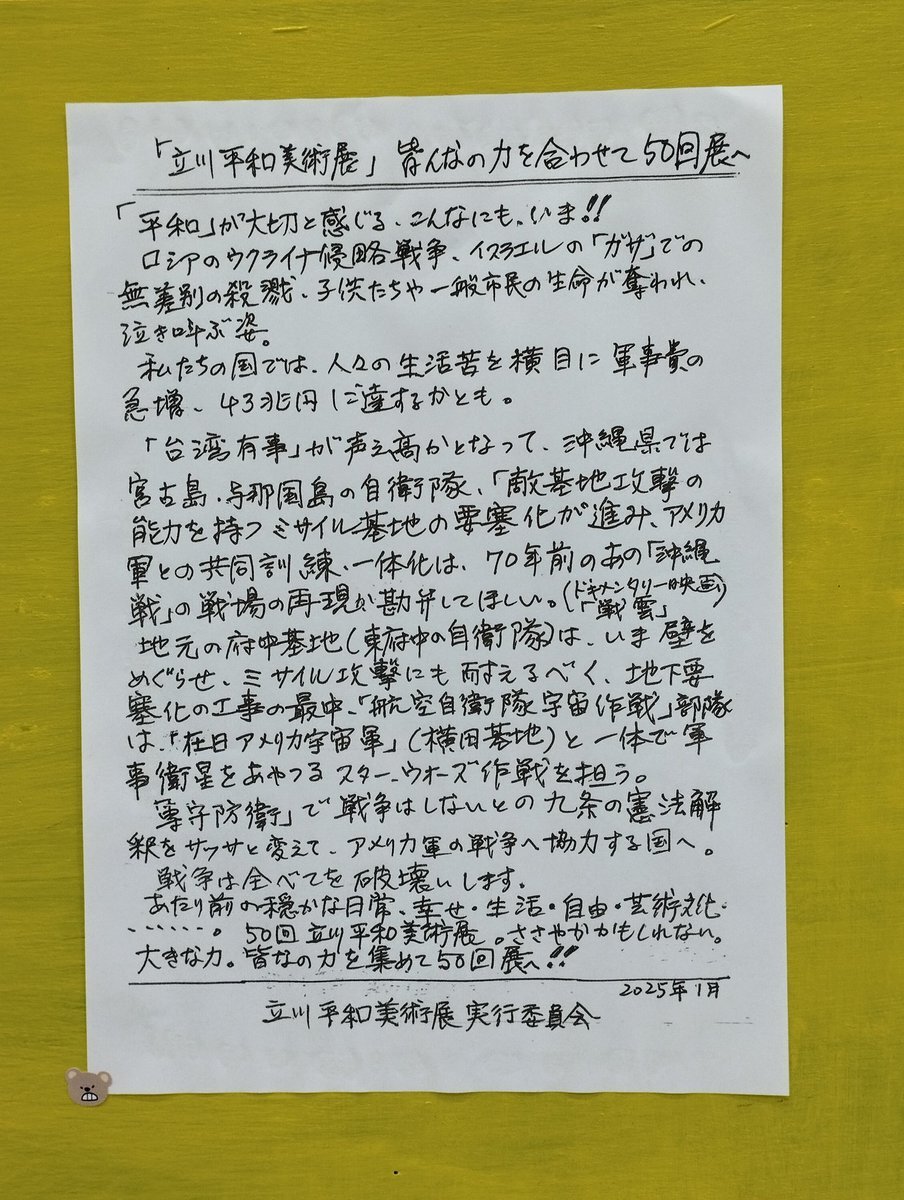 「立川平和美術展」皆んなの力を合わせて50回展へ
「平和」が大切と感じる、こんなにも、いま!!
ロシアのウクライナ侵略戦争、イスラエルの「ガザ」での
無差別の殺戮、子供たちや一般市民の生命が奪われ、
泣き叫ぶ姿。
私たちの国では、人々の生活苦を横目に軍事費の
急増、43兆円に達するかとも。
「台湾有事」が声高かとなって、沖縄県では
宮古島、与那国島の自衛隊、「敵基地攻撃の
能力を持つミサイル基地の要塞化が進み、アメリカ
軍との共同訓練、一体化は、70年前のあの「沖縄
戦」の戦場の再現か勘弁してほしい。(ドキメンタリー映画)
「戦雲」
地元の府中基地(東府中の自衛隊)は、いま壁を
めぐらせ、ミサイル攻撃にも耐えるべく、地下要
塞化の工事の最中、「航空自衛隊宇宙作戦」部隊
は、「在日アメリカ宇宙軍」(横田基地)と一体で軍
事衛星をあやつるスターウオーズ作戦を担う。
専守防衛」で戦争はしないとの九条の憲法解
釈をサッサと変えて、アメリカ軍の戦争へ協力する国へ。
戦争は全べてを破壊いします。
あたり前の穏かな日常、幸せ・生活・自由・芸術文化・
・・・・・・。50回立川平和美術展。ささやかかもしれない。
大きな力。皆なの力を集めて50回展へ!!
2025年1月
立川平和美術展実行委員会